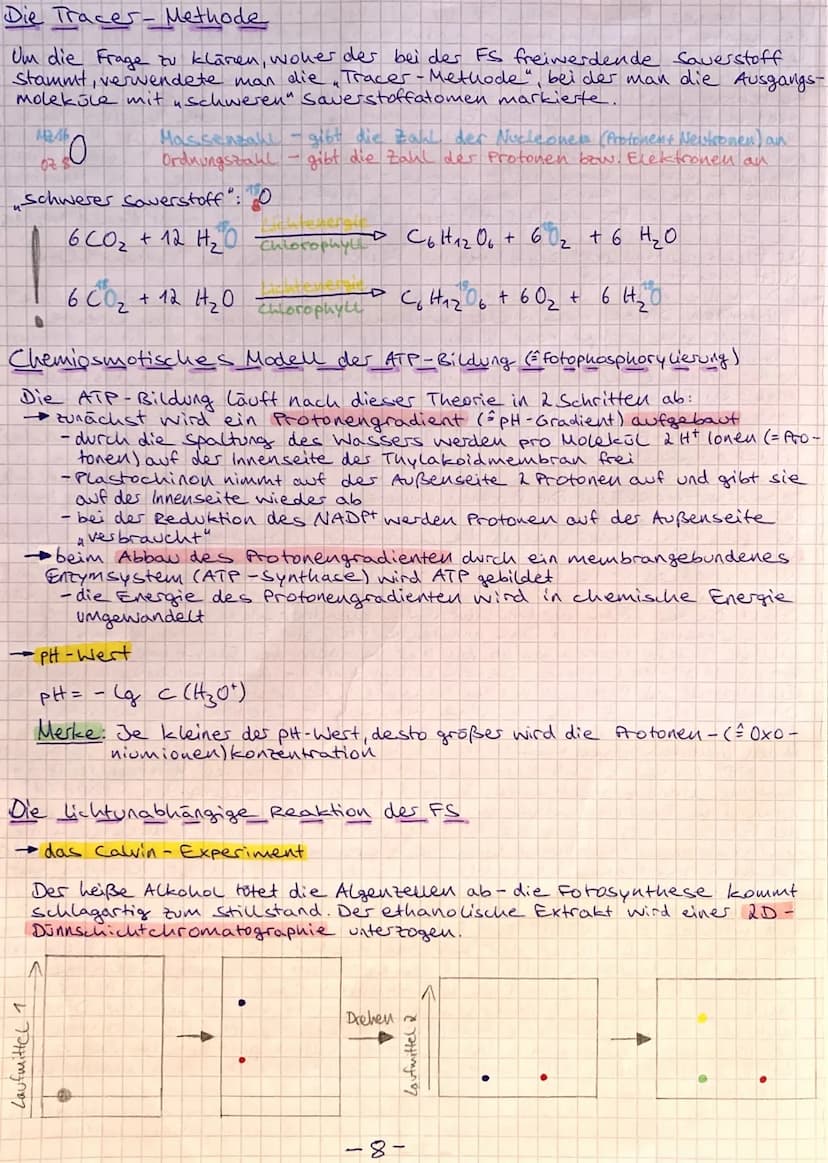 Die Tracer-Methode
Um die Frage zu klären, woher der bei der FS freiwerdende Sauerstoff
stammt, verwendete man die „Tracer-Methode", bei der man die Ausgangs-
moleküle mit „schweren" Sauerstoffatomen markierte.
MZ 16 O Massenzahl - gibt die Zahl der Nucleonen (Protonen + Neutronen) an
OZ 8 Ordnungszahl - gibt die Zahl der Protonen bzw. Elektronen an
„schwerer Sauerstoff": ¹⁸₈O
! 6 CO₂ + 12 H₂¹⁸O Lichtenergie Chlorophyll → C₆H₁₂O₆ + 6 ¹⁸O₂ + 6 H₂O
6 C¹⁸O₂ + 12 H₂O Lichtenergie Chlorophyll → C₆H₁₂¹⁸O₆ + 6 O₂ + 6 H₂¹⁸O
Chemiosmotisches Modell der ATP-Bildung (≙ Fotophosphorylierung)
Die ATP-Bildung läuft nach dieser Theorie in 2 Schritten ab:
→ zunächst wird ein Protonengradient (≙ pH-Gradient) aufgebaut
- durch die Spaltung des Wassers werden pro Molekül 2 H⁺ Ionen (= Pro-
tonen) auf der Innenseite der Thylakoidmembran frei
- Plastochinon nimmt auf der Außenseite 2 Protonen auf und gibt sie
auf der Innenseite wieder ab
- bei der Reduktion des NADP⁺ werden Protonen auf der Außenseite
„verbraucht"
→ beim Abbau des Protonengradienten durch ein membrangebundenes
Enzymsystem (ATP-Synthase) wird ATP gebildet
- die Energie des Protonengradienten wird in chemische Energie
umgewandelt
→ pH-Wert
pH = - lg c (H₃O⁺)
Merke: Je kleiner der pH-Wert, desto größer wird die Protonen- (≙ Oxo-
niumionen) konzentration
Die lichtunabhängige Reaktion der FS
→ das Calvin-Experiment
Der heiße Alkohol tötet die Algenzellen ab - die Fotosynthese kommt
schlagartig zum Stillstand. Der ethanolische Extrakt wird einer 2D-
Dünnschichtchromatographie unterzogen.
Laufmittel 1
Drehen
Laufmittel 2
-8-